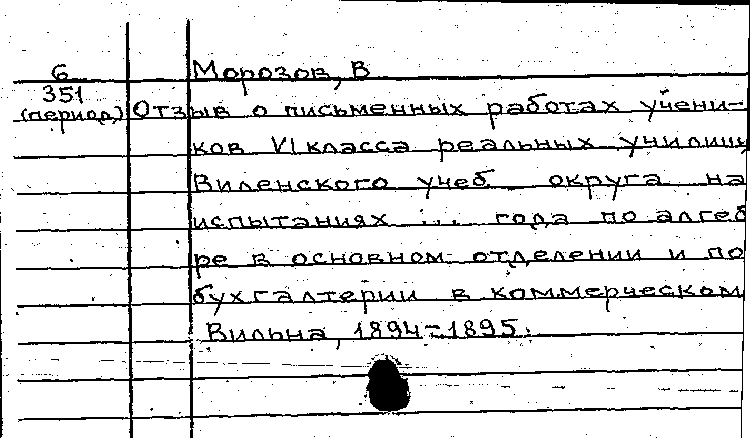 6 Морозов, В
351
(период) Отзыв о письменных работах учени-
ков VI класса реальных училищ
Виленского учеб округа на
испытаниях ... года по алгеб
ре в основном отделении и по
бухгалтерии в коммерческом
Вильна, 1894-1895.